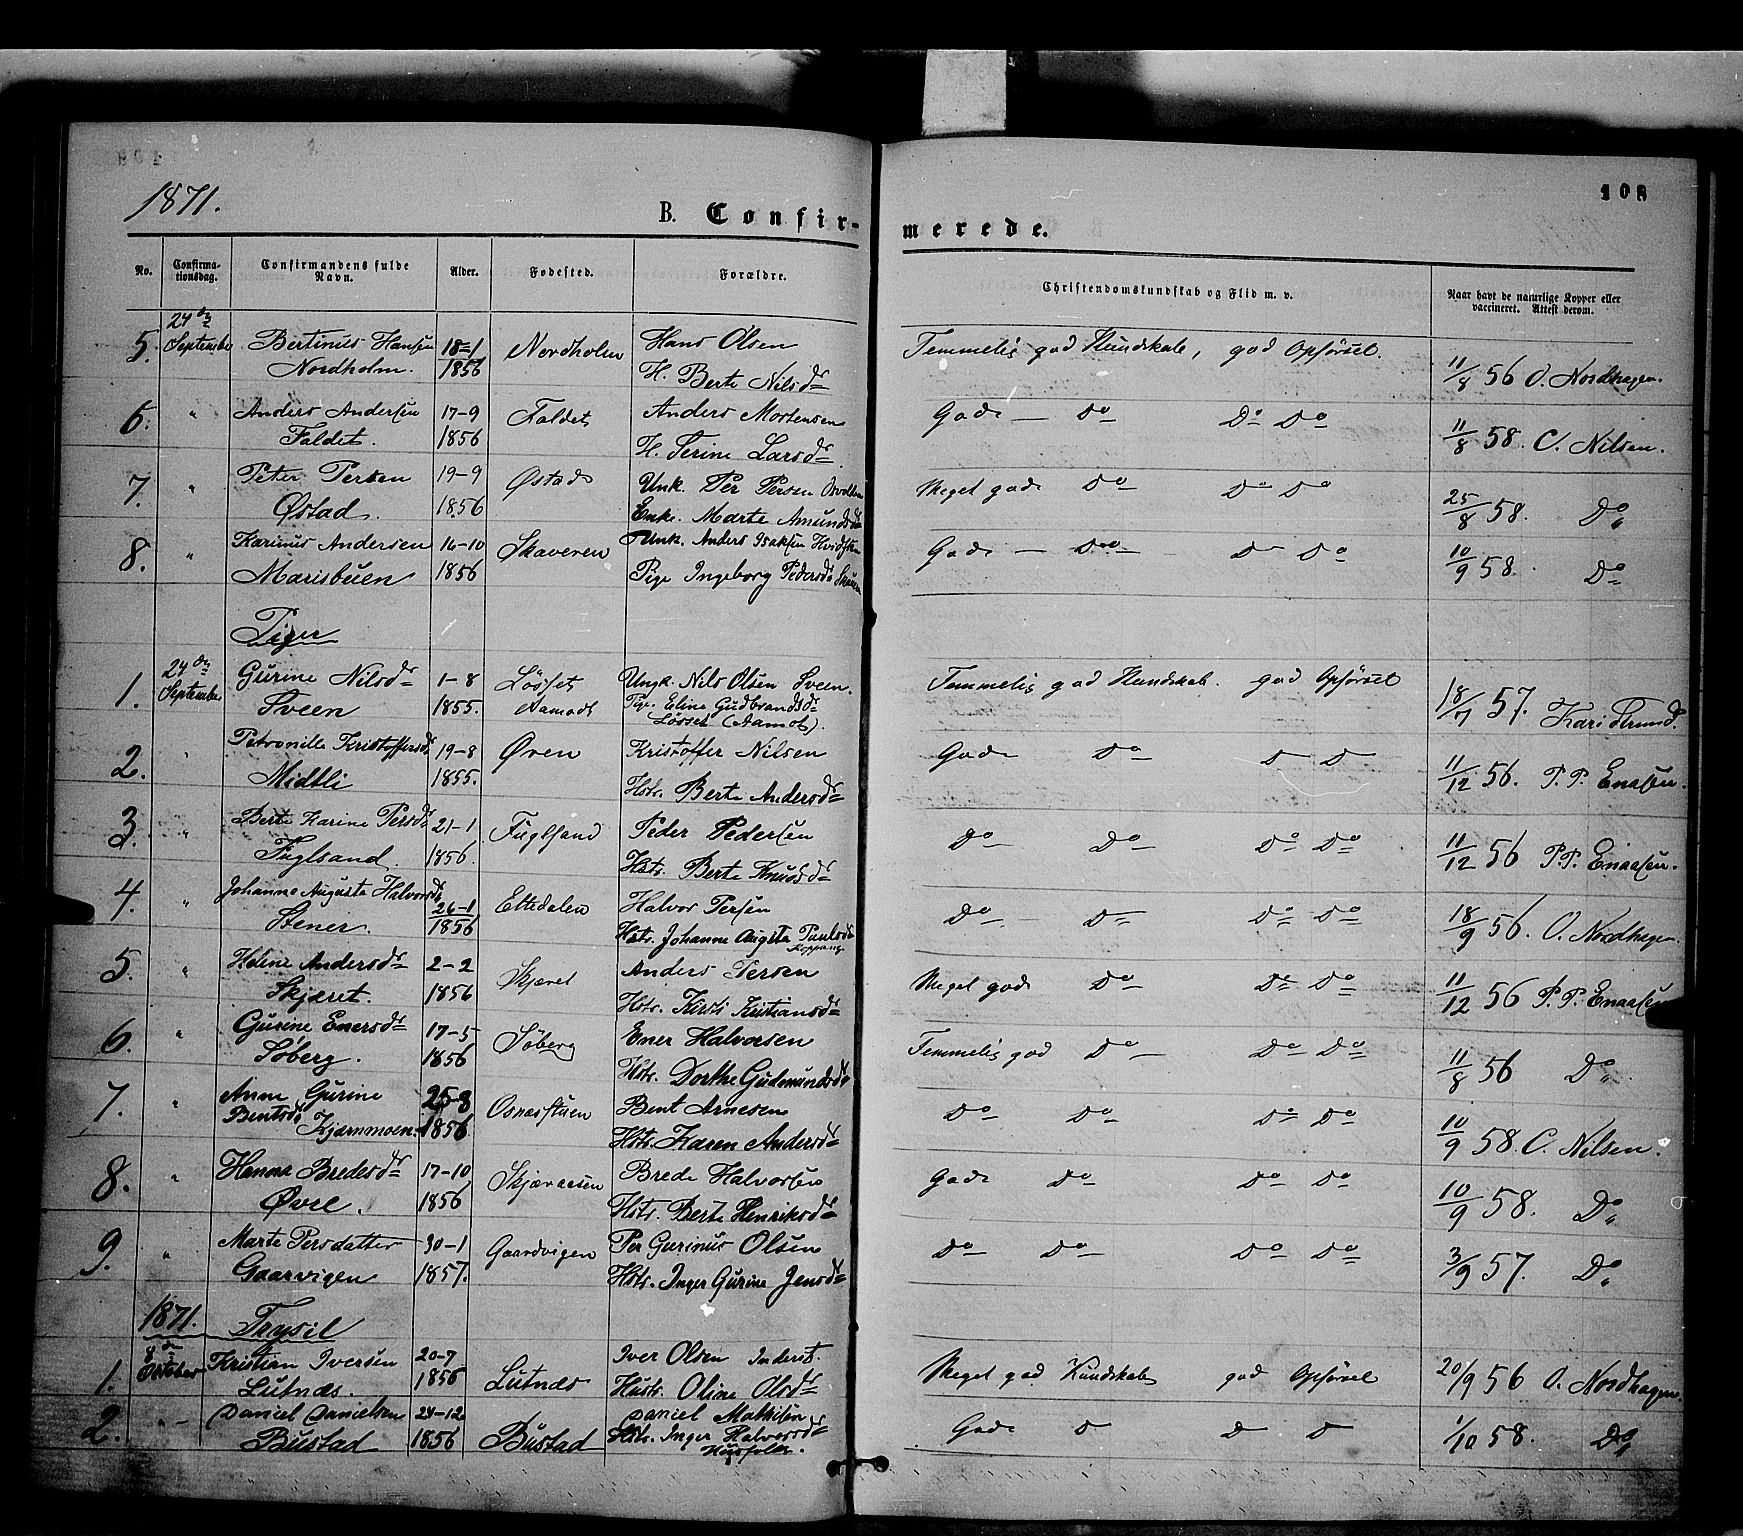 108
1871.
B. Confirmerede.
No. Confirmationsdag. Confirmandens fulde Navn. Alder. Fødested. Forældre. Christendomskundskab og Flid m. v. Naar havt de naturlige Kopper eller vaccineret. Attest derom.
24de
5. September Bertinus Hansen 18-1 Nordholm Hans Olsen Temmelig god Kundskab, god Opførsel.
Nordholm. 1856 H. Berte Nilsdr 11/8 56 O. Nordhagen.
6. " Anders Andersen 17-9 Faldet Anders Mortensen God – Do Do Do
Faldet. 1856 H. Serine Larsdr 11/8 58. C. Nilsen.
7. " Peter Persen 19-9 Østad Unk. Per Persen Meget god Do Do Do
Østad. 1856 Enke. Marte Amundsdr 25/8 58. Do
8. " Karinus Andersen 16-10 Skaveren Unk. Anders Isaksen God – Do – Do Do
Marisbuen 1856 Pige Ingeborg Pedersdr 10/9 58. Do
Piger
24de
1. September Gurine Nilsdr 1-8 Løsset Ungk. Nils Olsen Sveen. Temmelig god Kundskab. god Opførsel
Sveen 1855. Aamodt Pige. Eline Gudbrandsdr Løsset (Aamot). 18/7 57. Kari
2. " Petronille Kristoffersd. 19-8 Øren Kristoffer Nilsen God Do D D
Midtli 1855. Hstr. Berte Andersdr 11/12 56. P. P. Enaasen.
3. " Berte Karine Persdr 21-1 Fuglsand Peder Pedersen Do Do Do Do
Fuglsand. 1856. Hstr. Berte Knudsdr 11/12 56 P. P. Enaasen.
4. " Johanne Augusta Halvorsdr 26-1 Eltedalen Halvor Persen Do – D Do Do
Stener. 1856 Hstr. Johanne Augsta Paulsdr Koppang 18/9 56. O. Nordhagen.
5. " Helene Andersdr 2-2 Skjæret Anders Persen Meget god Do Do Do
Skjæret. 1856 Hstr. Kirsti Kristiansdr 11/12 56 P. P. Enaasen
6. " Gurine Enersdr 17-5 Søberg Ener Halvorsen Temmelig god Do – Do Do
Søberg. 1856 Hstr. Dorthe Gudmundsdr 11/8 56 Do
7. " Anne Gurine 25-8 Osnæsstuen Bent Arnesen Do Do Do Do
Bentsdr Kjærnmoen. 1856 Hstr. Karen Andersdr 10/9 58 C. Nilsen.
8. " Hanna Bredesdr 17-10 Skjæraasen Brede Halvorsen God Do Do Do
Øvre. 1856 Hstr. Berte Henriksdr 10/9 58. Do
9. " Marte Persdatter 30-1 Gaardvigen Per Gurinus Olsen Do Do Do Do
Gaarvigen 1857. Hstr. Inger Gurine Jensdr 3/9 57. Do
1871. Trysil
8de
1. October Kristian Iversen 20-7 Lutnæs Iver Olsen Inderst. Meget god Kundskab god Opførsel
Lutnæs. 1856 Hustr. Oline Olsdr 20/9 56 O. Nordhagen.
2. " – Daniel Danielsen 24-12 Bustad Daniel Mathisen God D D D
Bustad 1856 Hstr. Inger Halvorsdr Husfolk. 1/10 58. Do